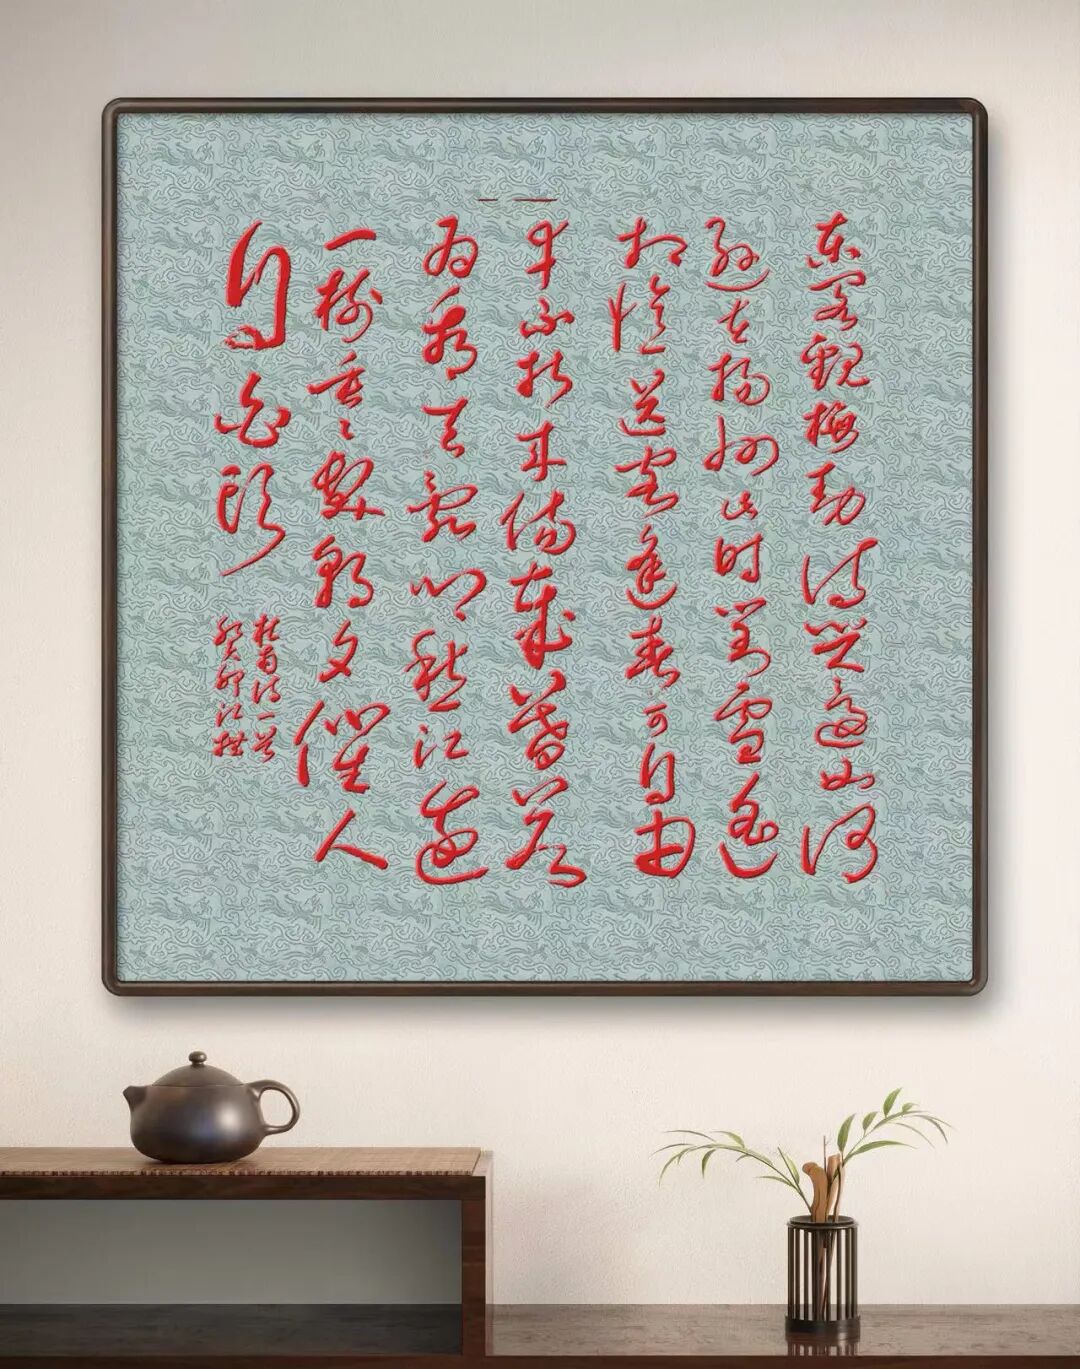 东阁观梅动诗兴还如何
逊在扬州此时对雪遥
相忆送客逢春可自由
幸不折来伤岁暮若
为看去乱乡愁江边
一树垂垂发朝夕催人
自白头
杜甫诗一首
癸卯